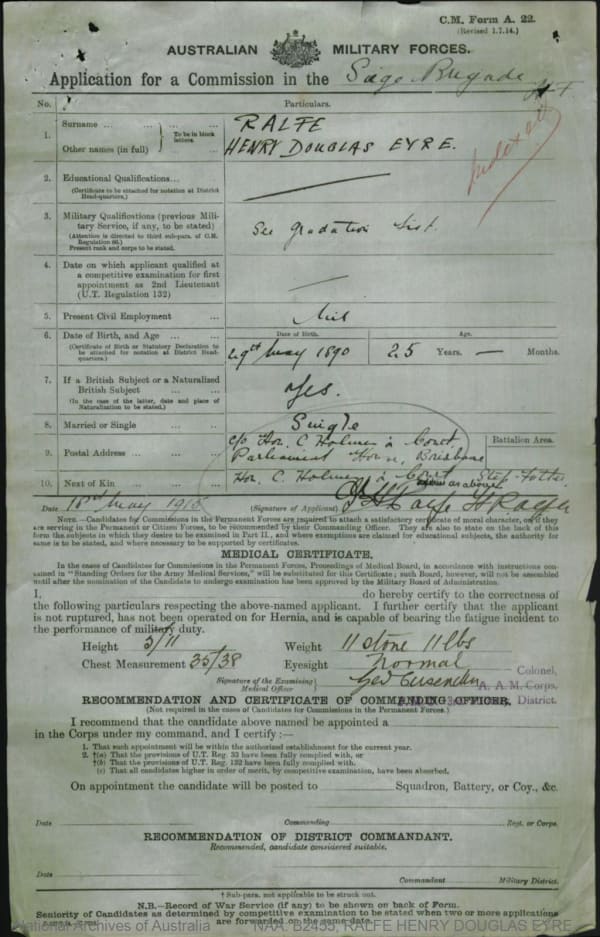 C.M. Form A. 22.
(Revised 1.7.14.)
AUSTRALIAN MILITARY FORCES.
Application for a Commission in the Siege Brigade
No. Particulars.
1. Surname ... ... ... ... To be in block letters. RALFE
Other names (in full) ... HENRY DOUGLAS EYRE.
2. Educational Qualifications...
(Certificate to be attached for notation at District
Head-quarters.)
3. Military Qualifications (previous Mili-
tary Service, if any, to be stated) See gradation list.
(Attention is directed to third sub-para. of C.M.
Regulation 86.)
Present rank and corps to be stated.
4. Date on which applicant qualified at
a competitive examination for first
appointment as 2nd Lieutenant
(U.T. Regulation 132)
5. Present Civil Employment ... Nil
6. Date of Birth, and Age ... ... Date of Birth. Age.
(Certificate of Birth or Statutory Declaration to
be attached for notation at District Head-
quarters.)
29th May 1890 25 Years. — Months.
7. If a British Subject or a Naturalized
British Subject ... ... Yes.
(In case of the latter, date and place of
Naturalization to be stated.)
8. Married or Single ... ... Single
9. Postal Address ... ... ... c/o Hon. C Holmes à Court, Battalion Area.
Parliament House, Brisbane
10. Next of Kin ... ... ... Hon. C. Holmes à Court Step Father
as above
Date May 1915 (Signature of Applicant) Ralfe H Ralfe
NOTE.—Candidates for Commissions in the Permanent Forces are required to attach a satisfactory certificate of moral character, or, if they
are serving in the Permanent or Citizen Forces, to be recommended by their Commanding Officer. They are also to state on the back of this
form the subjects in which they desire to be examined in Part II., and where exemptions are claimed for educational subjects, the authority for
same is to be stated, and where necessary to be supported by certificates.
MEDICAL CERTIFICATE.
In the cases of Candidates for Commissions in the Permanent Forces, Proceedings of Medical Board, in accordance with instructions con-
tained in "Standing Orders for the Army Medical Services," will be substituted for this Certificate; such Board, however, will not be assembled
until after the nomination of the Candidate to undergo examination has been approved by the Military Board of Administration.
I, do hereby certify to the correctness of
the following particulars respecting the above-named applicant. I further certify that the applicant
is not ruptured, has not been operated on for Hernia, and is capable of bearing the fatigue incident to
the performance of military duty.
Height 5/11 Weight 11 stone 11 lbs
Chest Measurement 35/38 Eyesight normal
Signature of the Examining
Medical Officer
Colonel,
A. A. M. Corps,
District.
RECOMMENDATION AND CERTIFICATE OF COMMANDING OFFICER.
(Not required in the cases of Candidates for Commissions in the Permanent Forces.)
I recommend that the candidate above named be appointed a
in the Corps under my command, and I certify :—
1. That such appointment will be within the authorized establishment for the current year.
2. †(a) That the provisions of U.T. Reg. 33 have been fully complied with, or
†(b) That the provisions of U.T. Reg. 132 have been fully complied with.
(c) That all candidates higher in order of merit, by competitive examination, have been absorbed.
On appointment the candidate will be posted to Squadron, Battery, or Coy., &c.
Date Commanding Regt. or Corps.
RECOMMENDATION OF DISTRICT COMMANDANT.
Recommended, candidate considered suitable.
Date Commandant Military District.
† Sub-para. not applicable to be struck out.
N.B.—Record of War Service (if any) to be shown on back of Form.
Seniority of Candidates as determined by competitive examination to be stated when two or more applications
are forwarded on the same date.
National Archives of Australia NAA: B2455, RALFE HENRY DOUGLAS EYRE